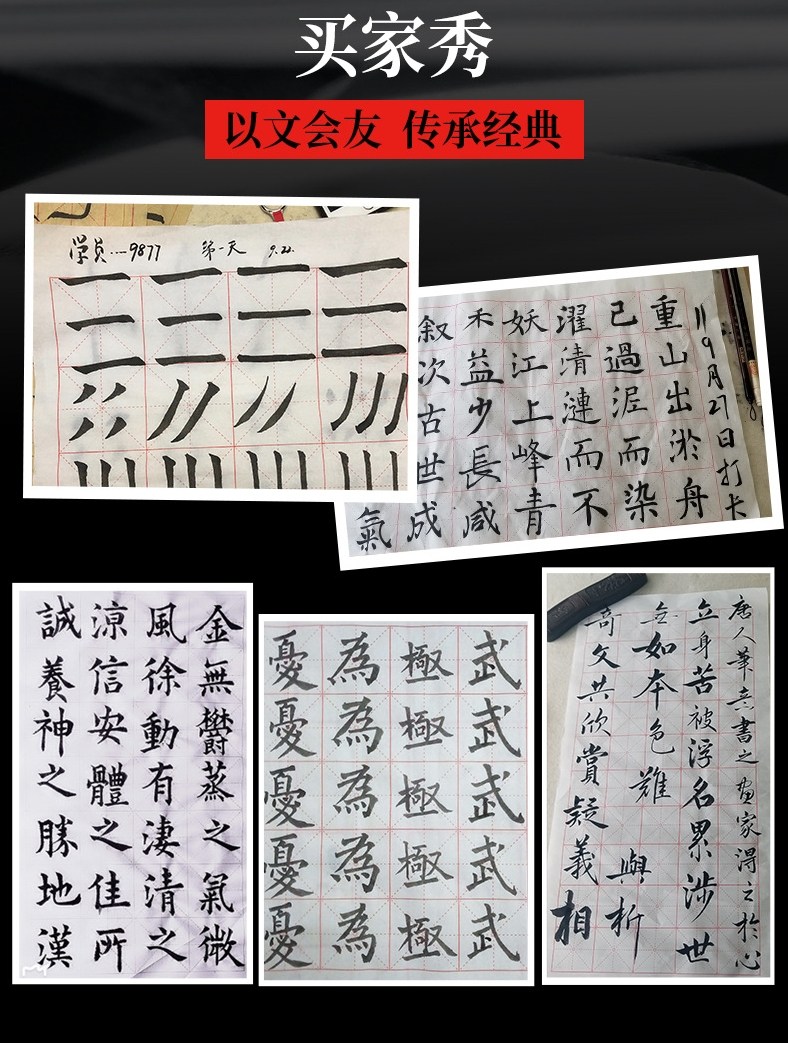 买家秀
以文会友 传承经典
学员....9877 第一天 9.22.
9月27日打卡
重山出淤舟
已過泥而染
濯清漣而不
妖江上峰青
禾益少長咸
叙次古世成
氣
金無欝蒸之氣微
風徐動有淒清之
涼信安體之佳所
誠養神之勝地漢
武武武武武
極極極極極
為為為為為
憂憂憂憂憂
唐人筆意書之畫家得之於心
立身苦被浮名累涉世
无如本色難 與析
奇文共欣賞疑義相